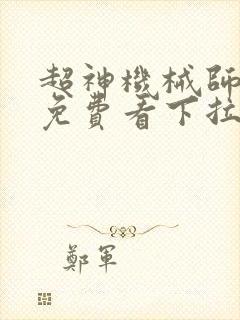 超神機械師
免費看下拉
鄭軍